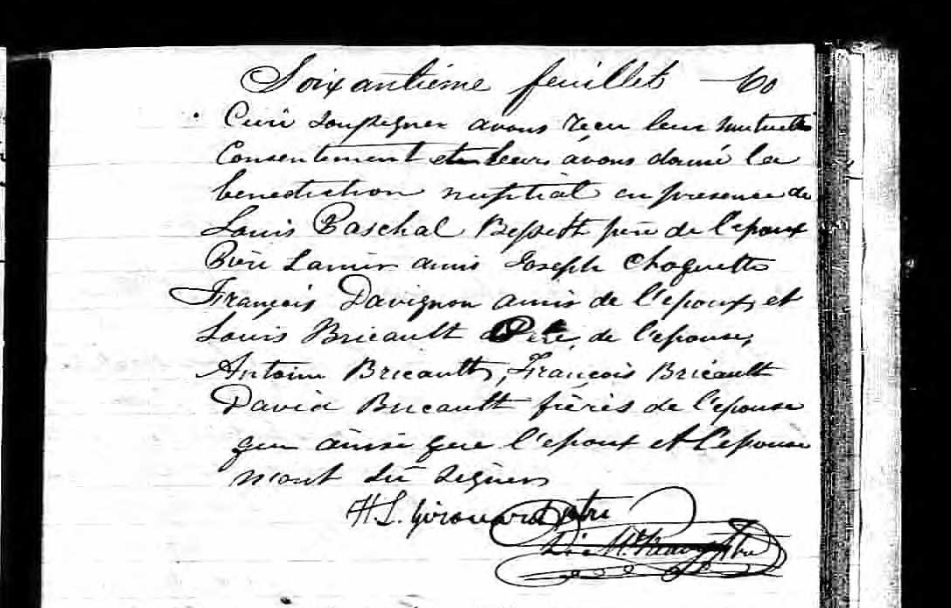 Soixantième feuillet — 60
Curé soussigner avons recu leur mutuelle
Consentement et leurs avons donné la
benediction nuptial en presence de
Louis Paschal Bessett père de l'epoux
Piere Lamir amis Joseph Choquette
François Davignon amis de l'epoux, et
Louis Bricault Père, de l'epouse,
Antoine Bricault, François Bricault
David Bricault frères de l'epouse
qui ainsi que l'epoux et l'epouse
n'ont su signer
H. L. Girouard Ptre
Ptre